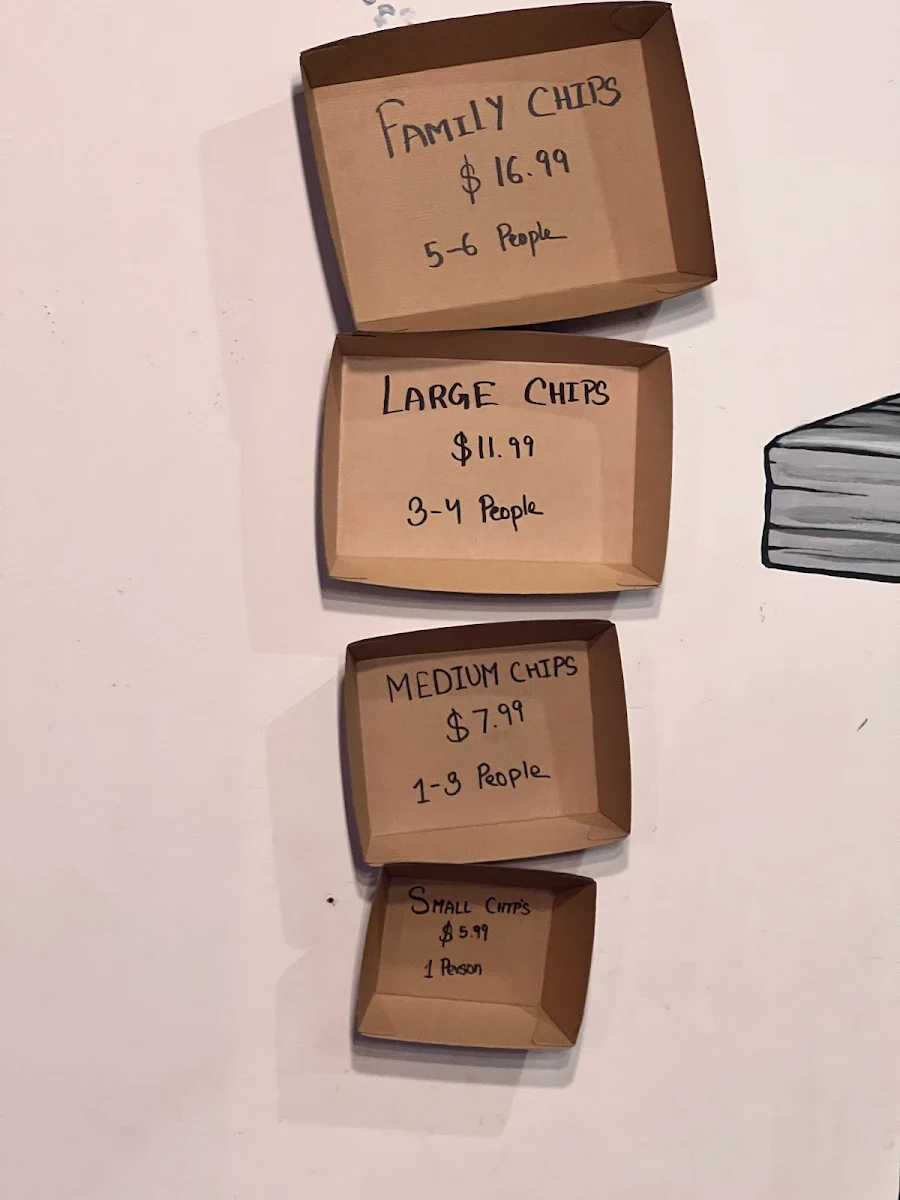 FAMILY CHIPS
$16.99
5-6 People
LARGE CHIPS
$11.99
3-4 People
MEDIUM CHIPS
$7.99
1-3 People
SMALL CHIP'S
$5.99
1 Person